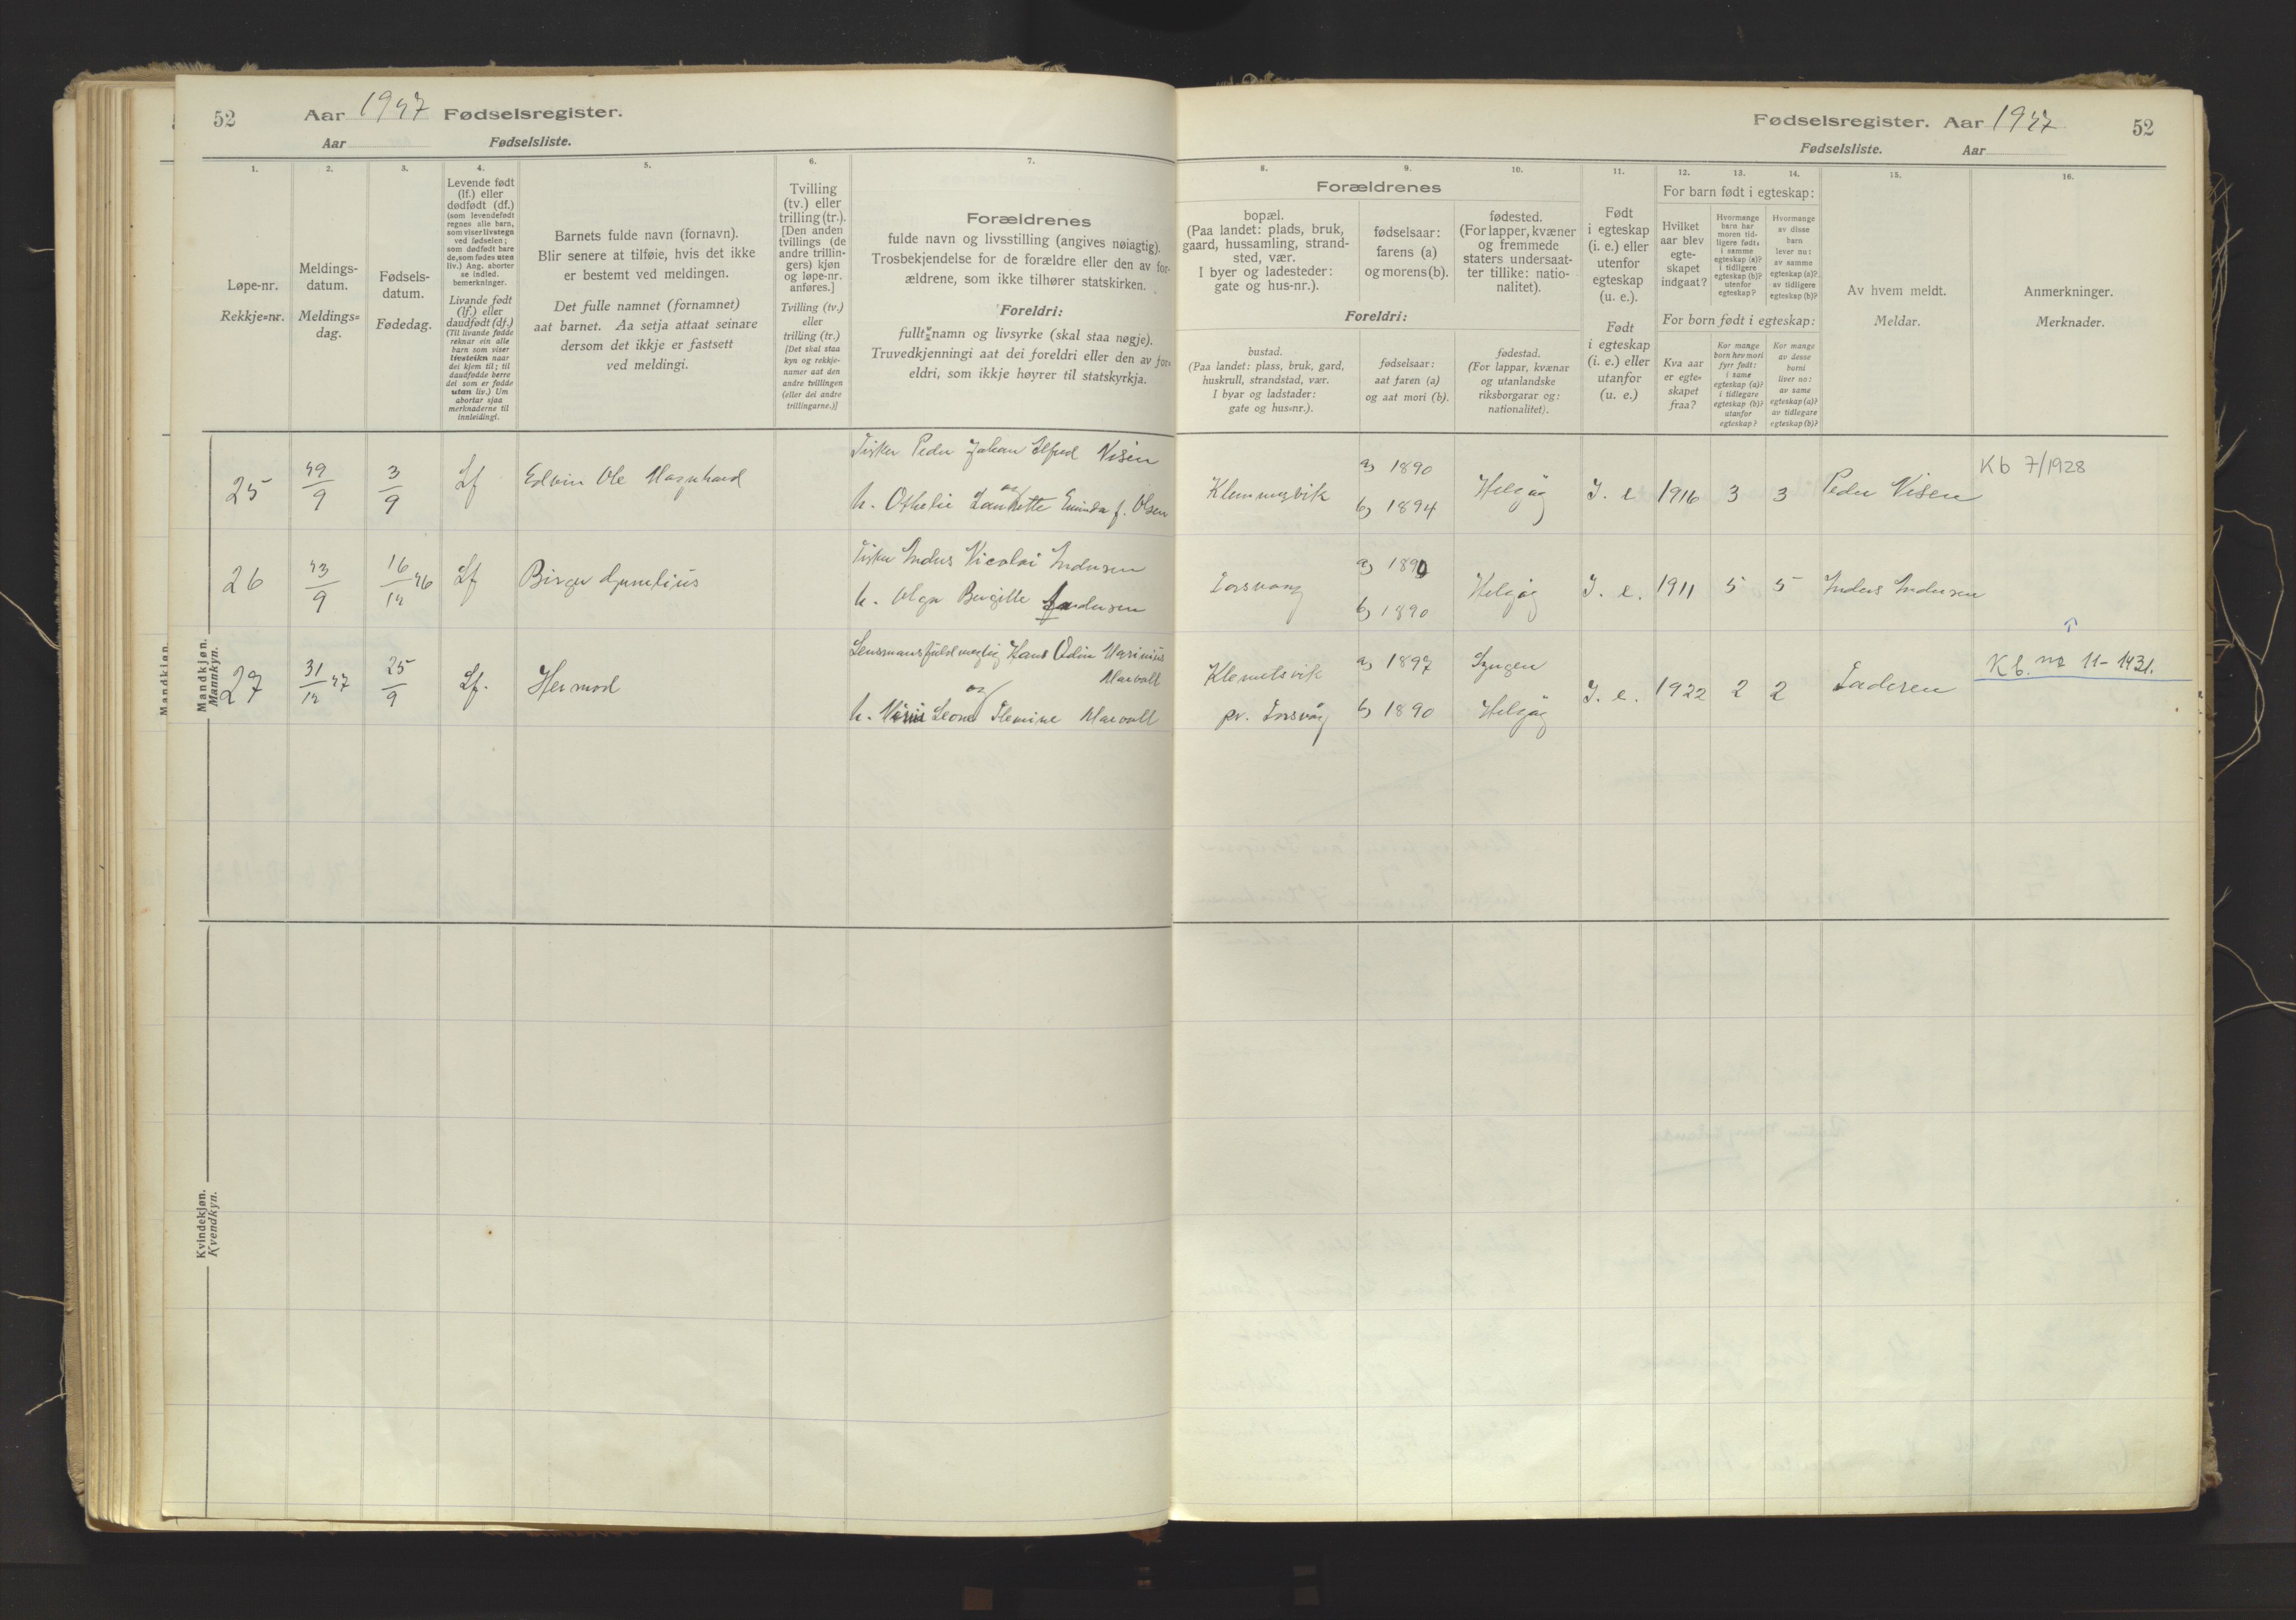 52
Aar 1927 Fødselsregister.
Aar Fødselsliste.
Fødselsregister. Aar 1927
52
Fødselsliste. Aar
1.
2.
3.
4.
5.
6.
7.
8.
9.
10.
11.
12.
13.
14.
15.
16.
Løpe-nr.
Rekkje=nr.
Meldings-
datum.
Meldings=
dag.
Fødsels-
datum.
Fødedag.
Levende født
(lf.) eller
dødfødt (df.)
(som levendefødt
regnes alle barn,
som viser livstegn
ved fødselen;
som dødfødt bare
de, som fødes uten
liv.) Ang. aborter
se indled.
bemerkninger.
Livande født
(lf.) eller
daudfødt (df.)
(Til livande fødde
reknar ein alle
barn som viser
livsteikn naar
dei kjem til; til
daudfødde berre
dei som er fødde
utan liv.) Um
abortar sjaa
merknaderne til
innleidingi.
Barnets fulde navn (fornavn).
Blir senere at tilføie, hvis det ikke
er bestemt ved meldingen.
Det fulle namnet (fornamnet)
aat barnet. Aa setja attaat seinare
dersom det ikkje er fastsett
ved meldingi.
Tvilling
(tv.) eller
trilling (tr.).
[Den anden
tvillings (de
andre trillin-
gers) kjøn
og løpe-nr.
anføres.]
Tvilling (tv.)
eller
trilling (tr.)
[Det skal staa
kyn og rekkje-
numer aat den
andre tvillingen
(eller dei andre
trillingarne.)]
Forældrenes
fulde navn og livsstilling (angives nøiagtig).
Trosbekjendelse for de forældre eller den av for-
ældrene, som ikke tilhører statskirken.
Foreldri:
fullt namn og livsyrke (skal staa nøgje).
Truvedkjenningi aat dei foreldri eller den av for-
eldri, som ikkje høyrer til statskyrkja.
Forældrenes
bopæl.
(Paa landet: plads, bruk,
gaard, hussamling, strand-
sted, vær.
I byer og ladesteder:
gate og hus-nr.).
fødselsaar:
farens (a)
og morens (b).
fødested.
(For lapper, kvæner
og fremmede
staters undersaat-
ter tillike: natio-
nalitet).
Foreldri:
bustad.
(Paa landet: plass, bruk, gard,
huskrull, strandstad, vær.
I byar og ladstader:
gate og hus=nr.).
fødselsaar:
aat faren (a)
og aat mori (b).
fødestad.
(For lappar, kvænar
og utanlandske
riksborgarar og:
nationalitet).
Født
i egteskap
(i. e.) eller
utenfor
egteskap
(u. e.).
Født
i egteskap
(i. e.) eller
utanfor
(u. e.)
For barn født i egteskap:
Hvilket
aar blev
egte-
skapet
indgaat?
Hvormange
barn har
moren tid-
ligere født:
i samme
egteskap (a)?
i tidligere
egteskap (b)?
utenfor
egteskap?
Hvormange
av disse
barn
lever nu:
av samme
egteskap (a)?
av tidligere
egteskap (b)?
For born født i egteskap:
Kva aar
er egte=
skapet
fraa?
Kor mange
born hev mori
fyrr født:
i same
egteskap (a)?
i tidlegare
egteskap (b)?
utanfor
egteskap?
Kor mange
av desse
borni
liver no:
av same
egteskap (a)?
av tidlegare
egteskap (b)?
Av hvem meldt.
Meldar.
Anmerkninger.
Merknader.
Mandkjøn.
Mandkjøn.
Mannkyn.
25 29/9 3/9 Lf Edvin Ole Magnhard
Fisker Peder Johan Alfred Nisen
og
h. Othelie f. Olsen
a) 1890
b) 1894
I. e 1916 3 3 Peder Nisen
Kb 7/1928
26 23/9 16/12 26 Lf Birger
Fisker Anders Nicolai Andersen
h. Olga Bergitte Andersen
Torsvaag
a) 1890
b) 1890
Helgøy
I. e. 1911 5 5 Anders Andersen
27 31/12 27 25/9 Lf. Hermod
Lensmansfuldmegtig Hans Odin Marinius
Marvoll
og
h. Leone Marvoll
pr. Torsvåg
a) 1897
b) 1890
Lyngen
Helgøy
I. e. 1922 2 2 Faderen
Kb. nr 11-1431.
Kvindekjøn.
Kvendkyn.